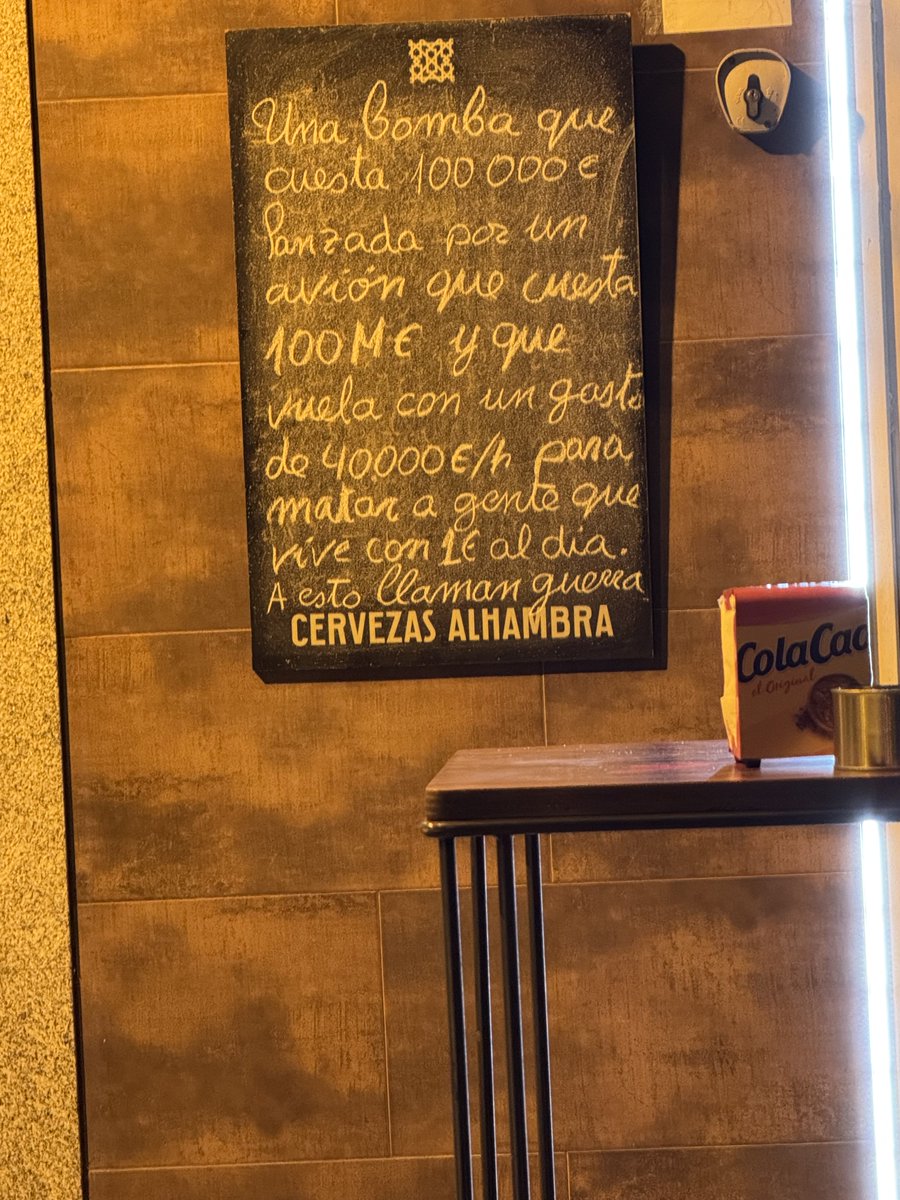 Una bomba que
cuesta 100 000 €
lanzada por un
avión que cuesta
100M€ y que
vuela con un gasto
de 40000€/h para
matar a gente que
vive con 1€ al día.
A esto llaman guerra
CERVEZAS ALHAMBRA
ColaCao
el Original